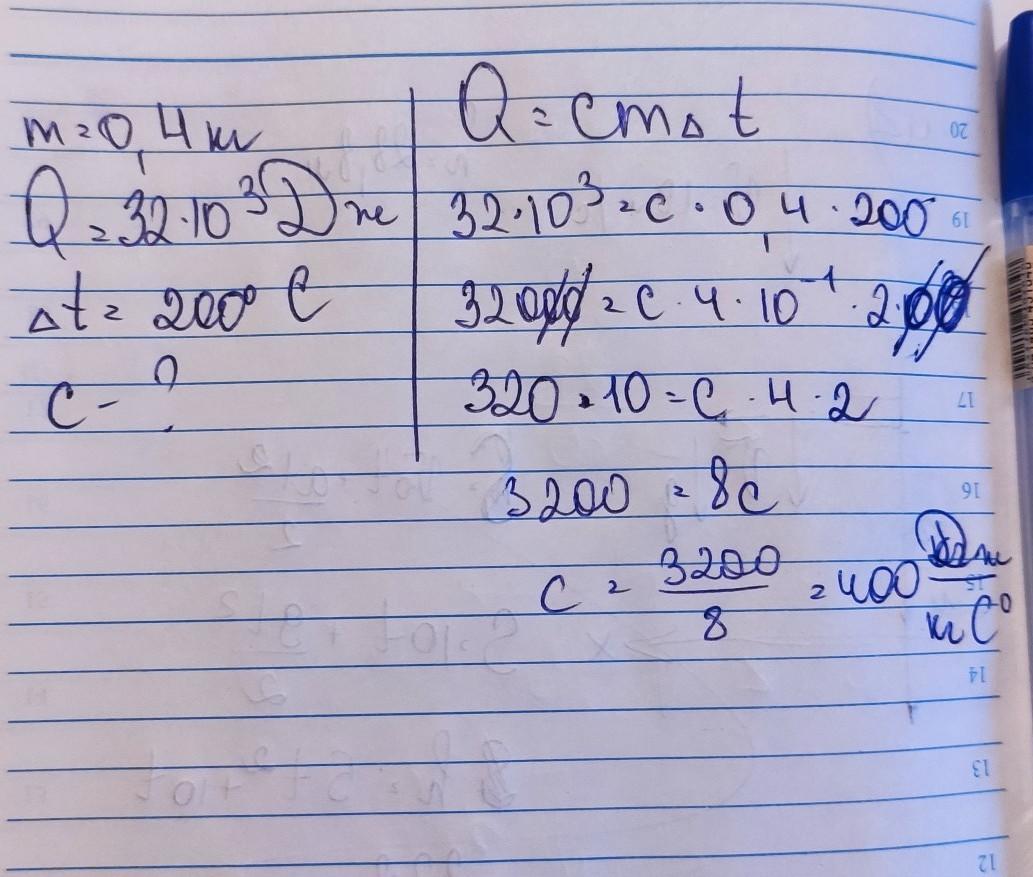 m = 0,4 кг
Q = 32·10³ Дж
Δt = 200° C
c - ?
Q = cmΔt
32·10³ = c · 0,4 · 200
32000 = c · 4 · 10⁻¹ · 200
320 · 10 = c · 4 · 2
3200 = 8c
c = 3200/8 = 400 Дж/кг C°
20
19
17
16
15
14
13
12